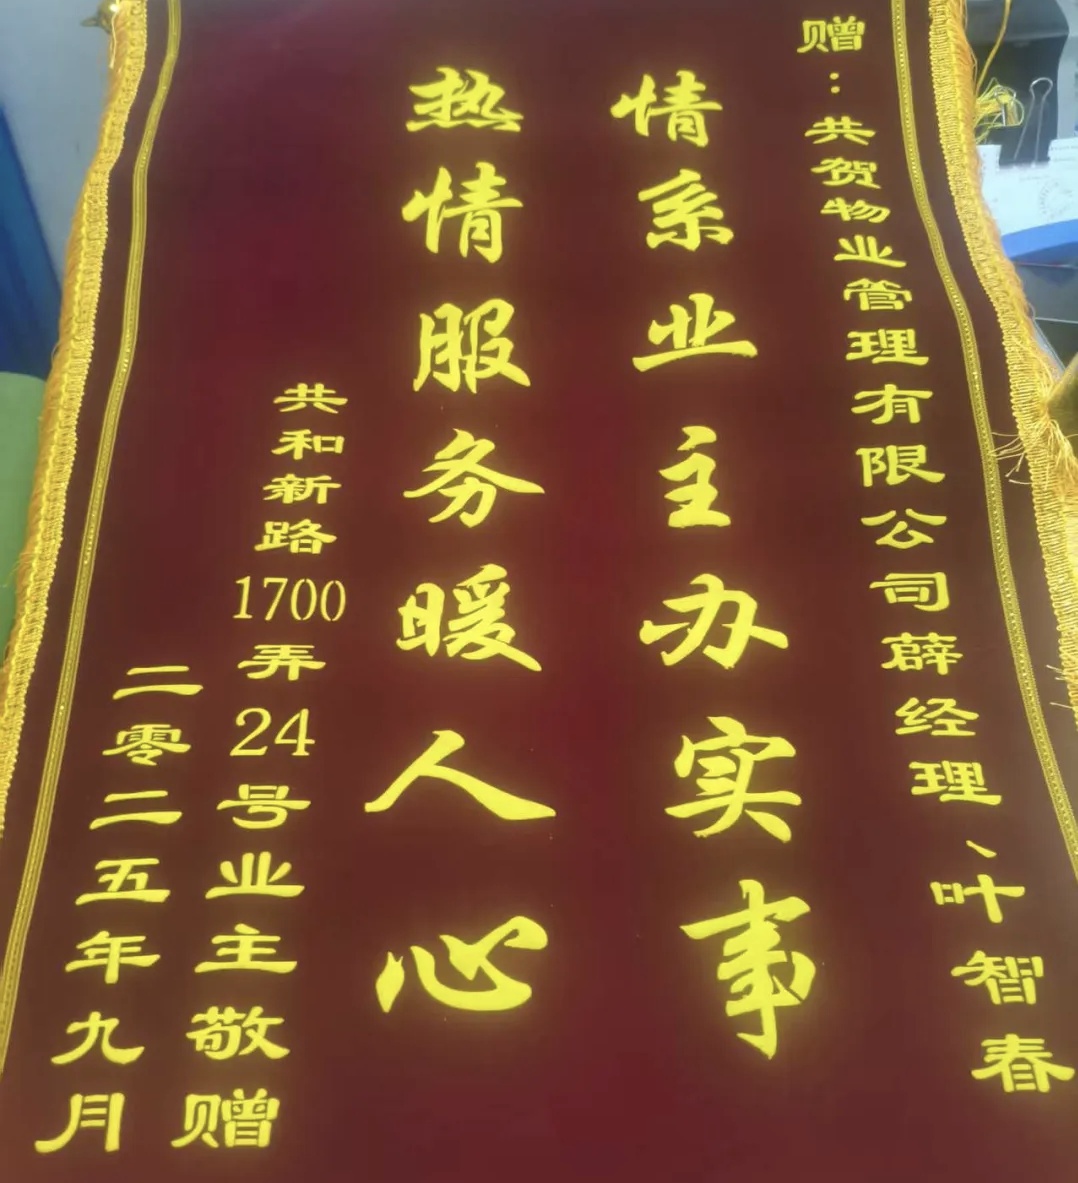 赠：共贺物业管理有限公司薛经理、叶智春
情系业主办实事
热情服务暖人心
共和新路1700弄24号业主敬赠
二零二五年九月